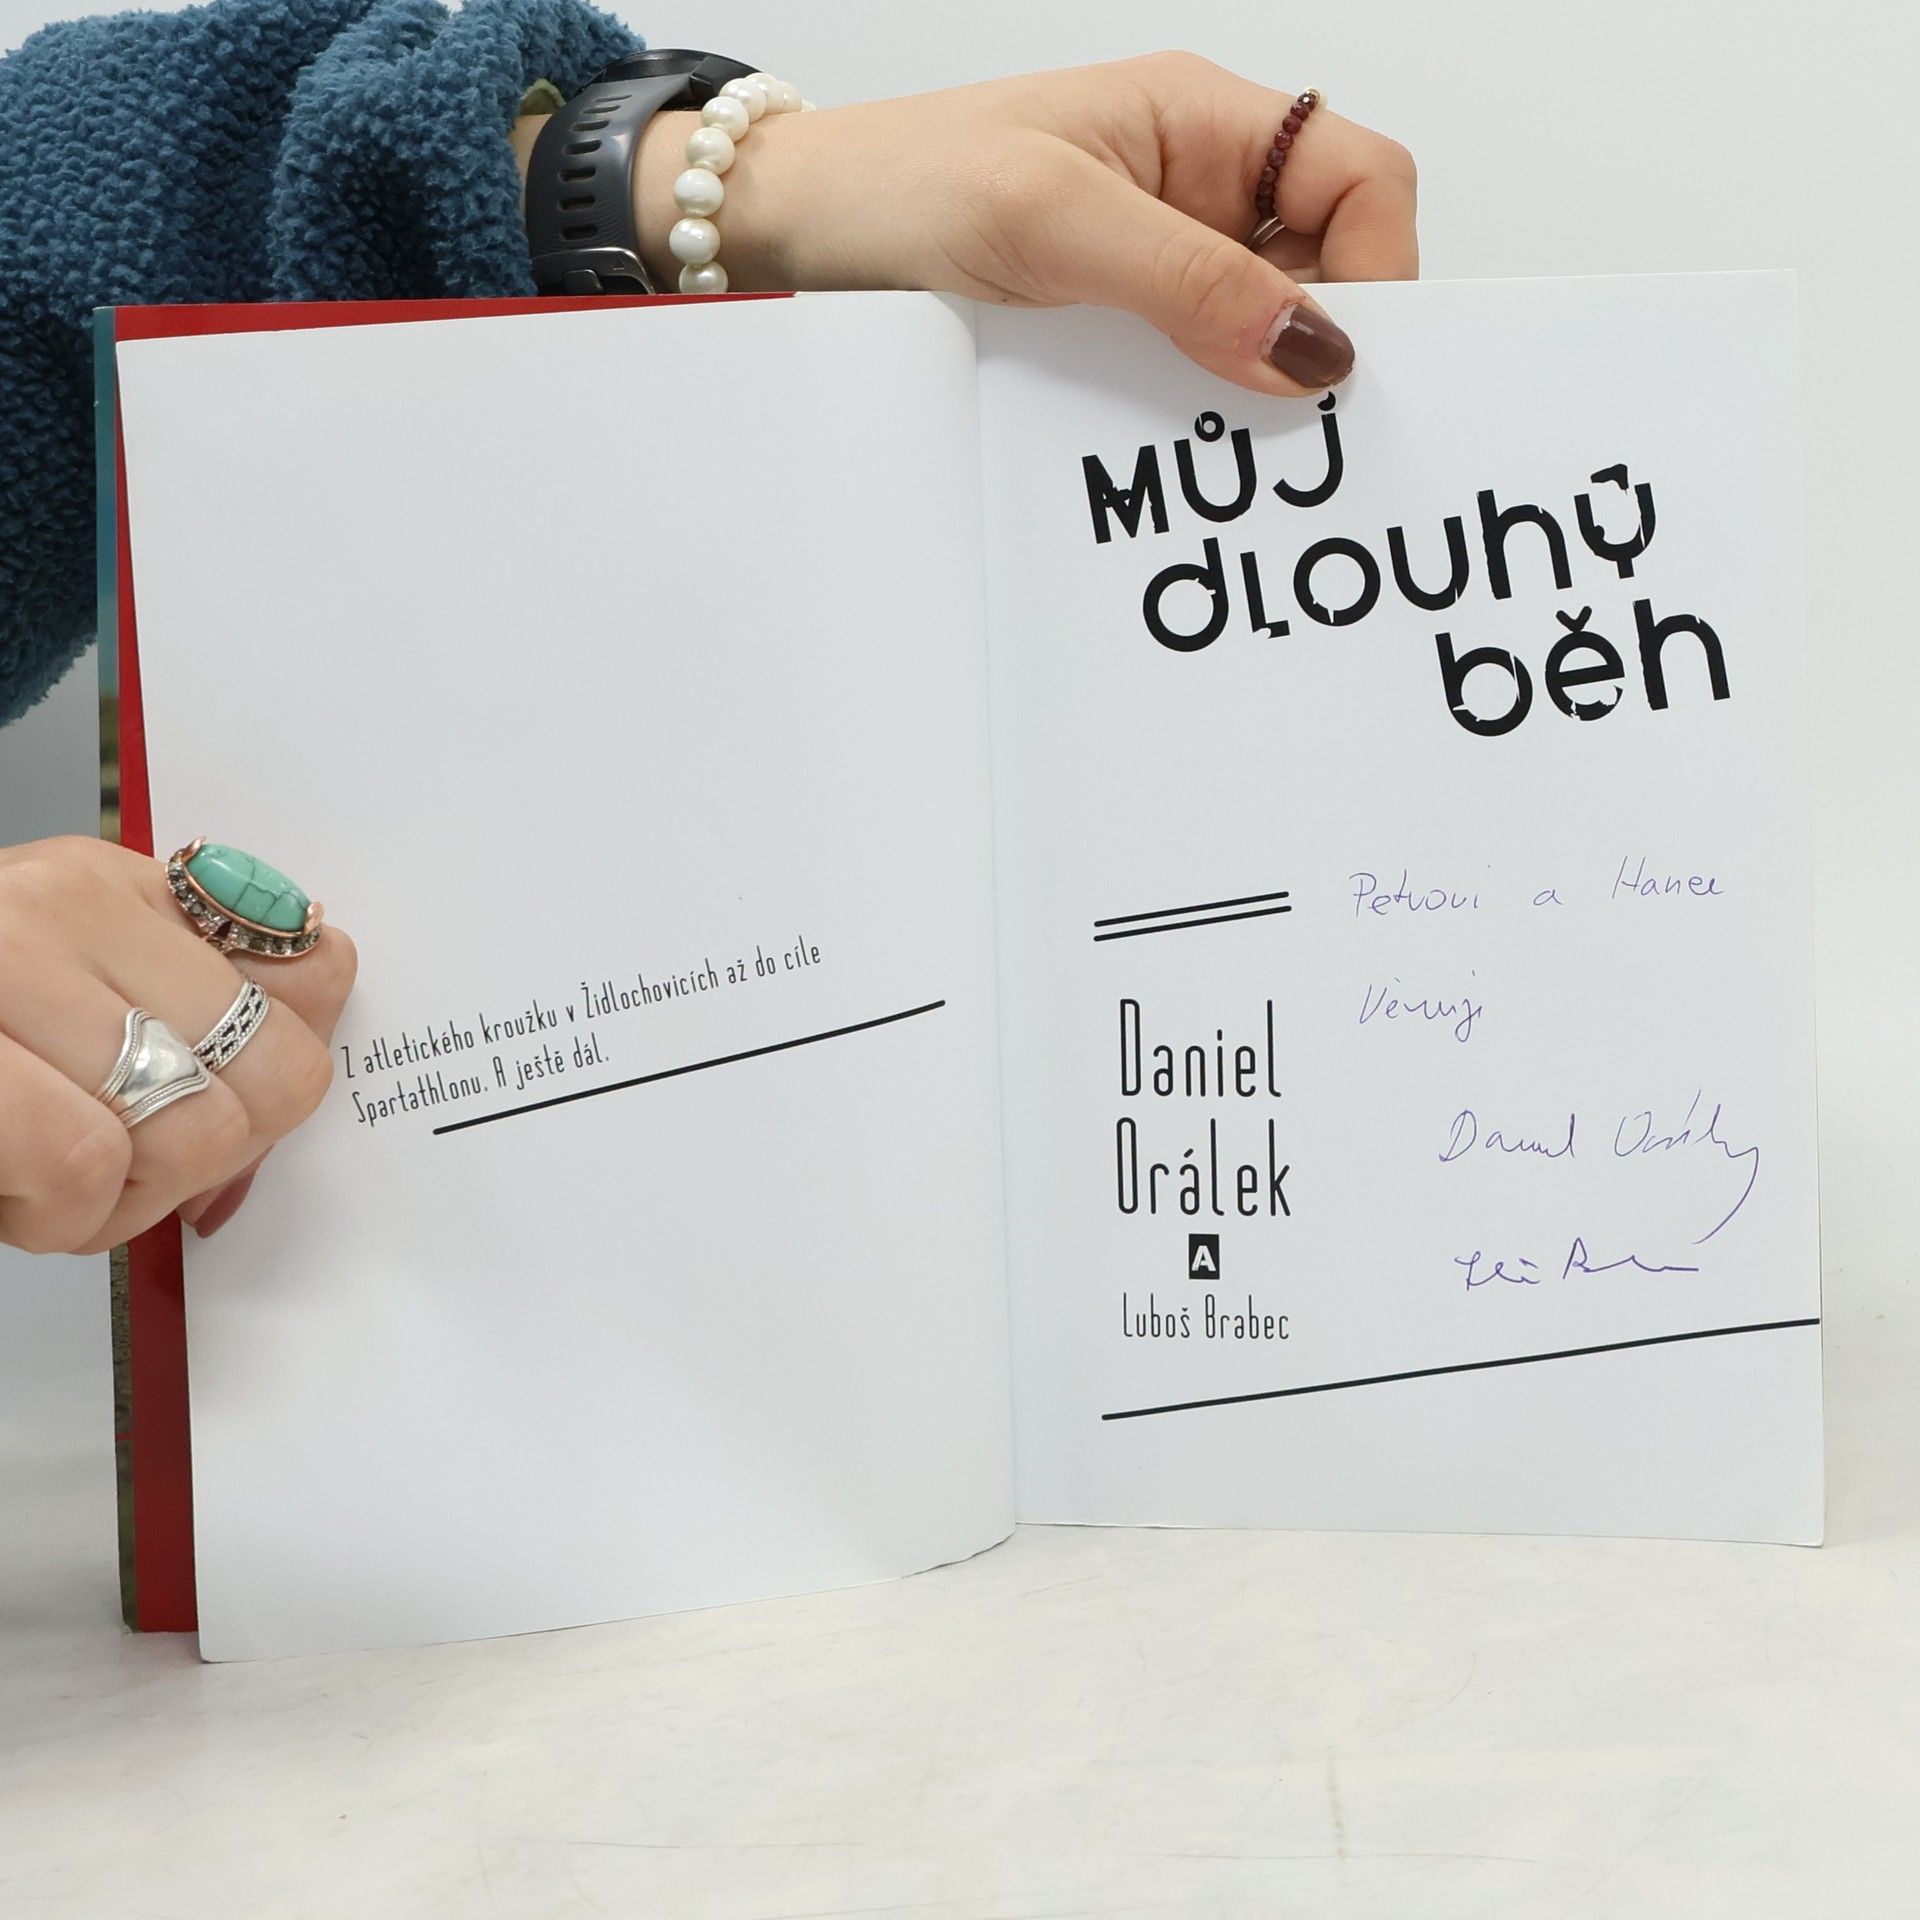 Z atletického kroužku v Židlochovicích až do cíle
Spartathlonu. A ještě dál.
Můj
dlouhý
běh
Petrovi a Hance
Věnují
Daniel
Orálek
A
Luboš Brabec
Daniel Orálek